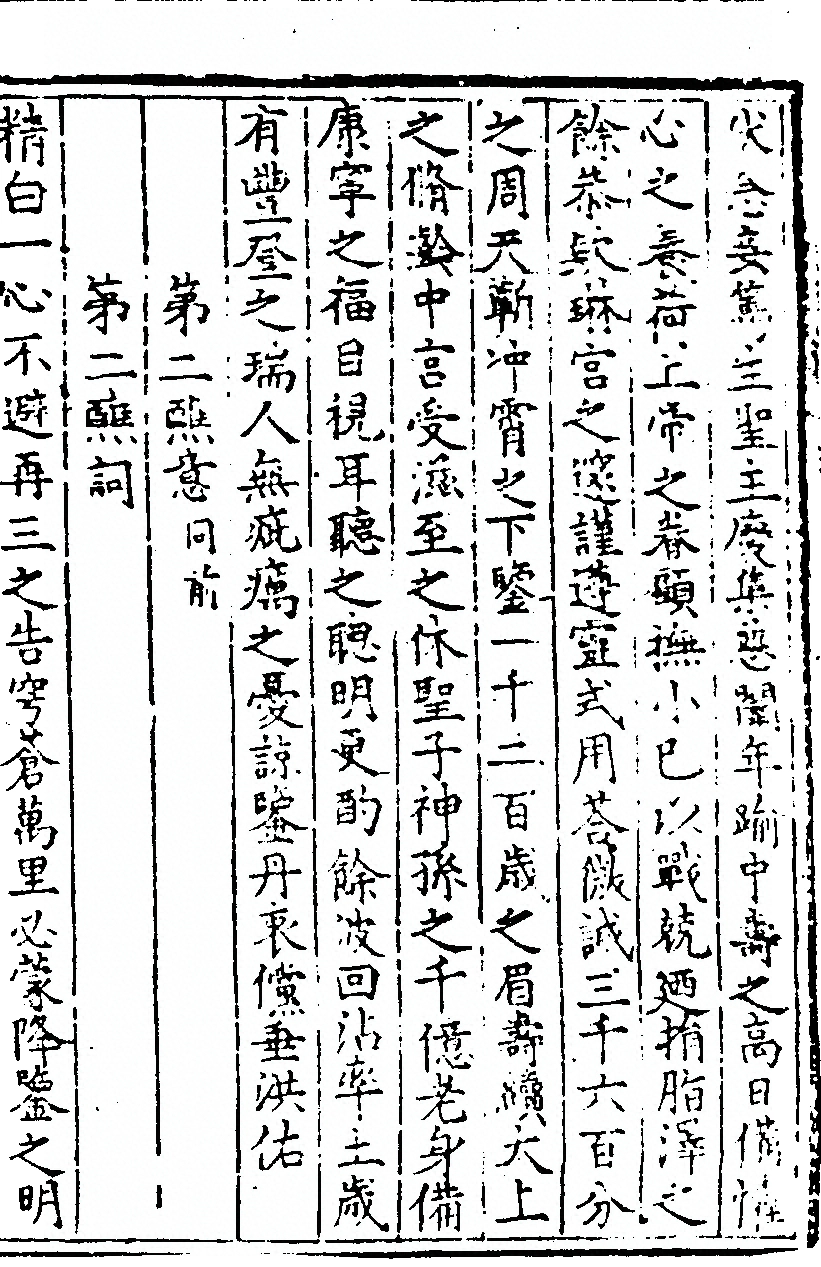 妄篤生聖主慶集慈闈年踰中壽之高日備
心之養荷上帝之眷顧撫小己以戰兢廼捐脂澤之
餘恭款琳宮之邃謹遵靈式用荅微誠三千六百分
之周天蘄冲霄之下鑒一千二百歲之眉壽續大上
之脩齡中宮受滋至之休聖子神孫之千億老身備
康寧之福目視耳聽之聰明更酌餘波回沾率土歲
有豐登之瑞人無疵癘之憂諒鑒丹衷儻垂洪佑
第二醮意同前
第二醮詞
精白一心不避再三之告穹蒼萬里必蒙降鑒之明